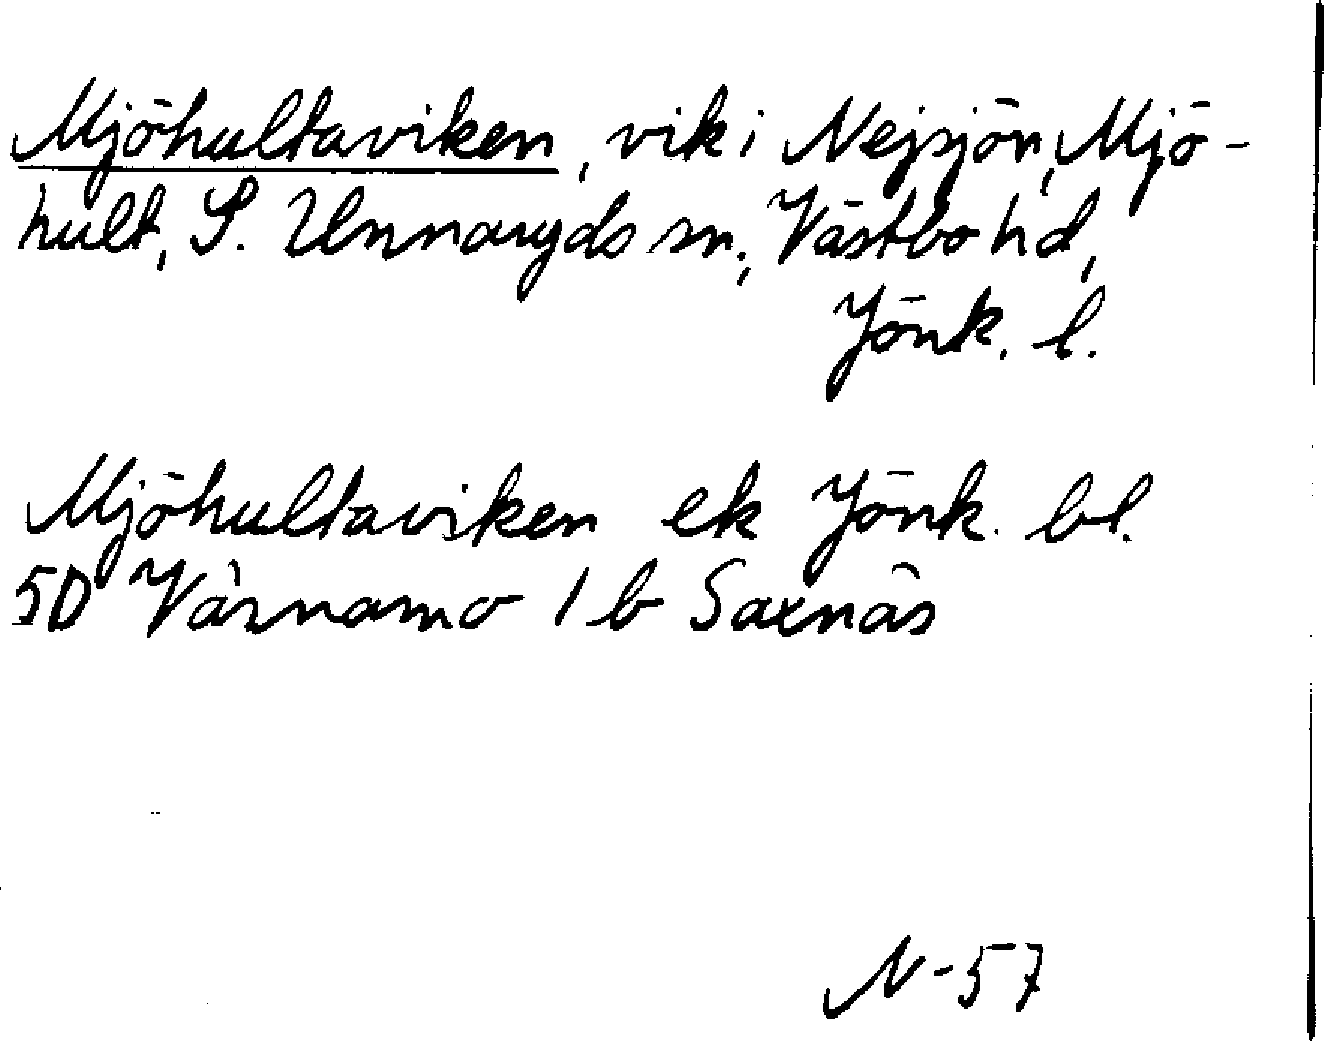 Mjöhultaviken, vik i Nejsjön, Mjö-
hult, S. Unnaryds sn., Västbo hd,
Jönk. l.
Mjöhultaviken ek Jönk. bl.
5D Värnamo 1 b Saxnäs
N-57